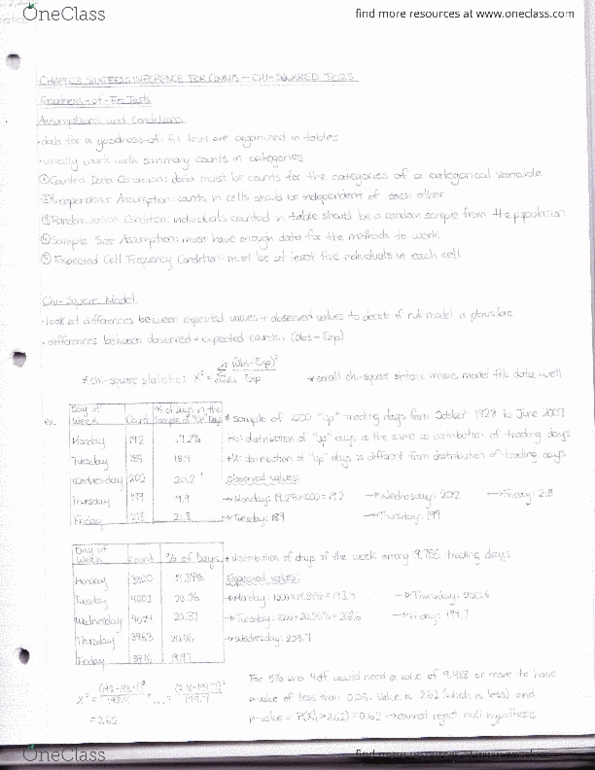 OneClass
find more resources at www.oneclass.com
CHAPTER SIXTEEN: INFERENCE FOR COUNTS - CHI-SQUARED TESTS
Goodness-of-Fit Tests
Assumptions and Conditions
• data for a goodness-of-fit are organized in tables
• usually work with summary counts in categories
① Counted Data Condition: data must be counts for the categories of a categorical variable
② Independence Assumption: counts in cells should be independent of each other
③ Randomization Condition: individuals counted in table should be a random sample from the population
④ Sample Size Assumption: must have enough data for the methods to work
⑤ Expected Cell Frequency Condition: must be at least five individuals in each cell
Chi-Square Model
• look at differences between expected values + observed values to decide if null model is plausible
• differences between observed + expected counts: (Obs-Exp)
* chi-square statistic: X² = Σ (Obs-Exp)² / Exp * small chi-square statistic means model fits data well
ex. Day of Week Count % of Days in the Sample of "Up" Days * sample of 1000 "up" trading days from October 1928 to June 2007
Monday 192 19.2% H0: distribution of "up" days is the same as distribution of trading days
Tuesday 189 18.9 HA: distribution of "up" days is different from distribution of trading days
Wednesday 202 20.2 Observed values:
Thursday 199 19.9 → Monday: 19.2% × 1000 = 192 → Wednesday: 202 → Friday: 218
Friday 218 21.8 → Tuesday: 189 → Thursday: 199
Day of Week Count % of Days * distribution of days of the week among 9,755 trading days
Monday Expected values:
Tuesday 4002 → Monday: → Thursday: 200.6
Wednesday 4024 → Tuesday: → Friday: 199.7
Thursday 3963 → Wednesday:
Friday 19.97
X² = + ... + For 5% and 4df would need a value of 9.488 or more to have
= 2.62 p-value of less than 0.05. Value is 2.62 (which is less) and
p-value = P(X²₄ > 2.62) = 0.62 → cannot reject null hypothesis
OneClass
find more resources at www.oneclass.com